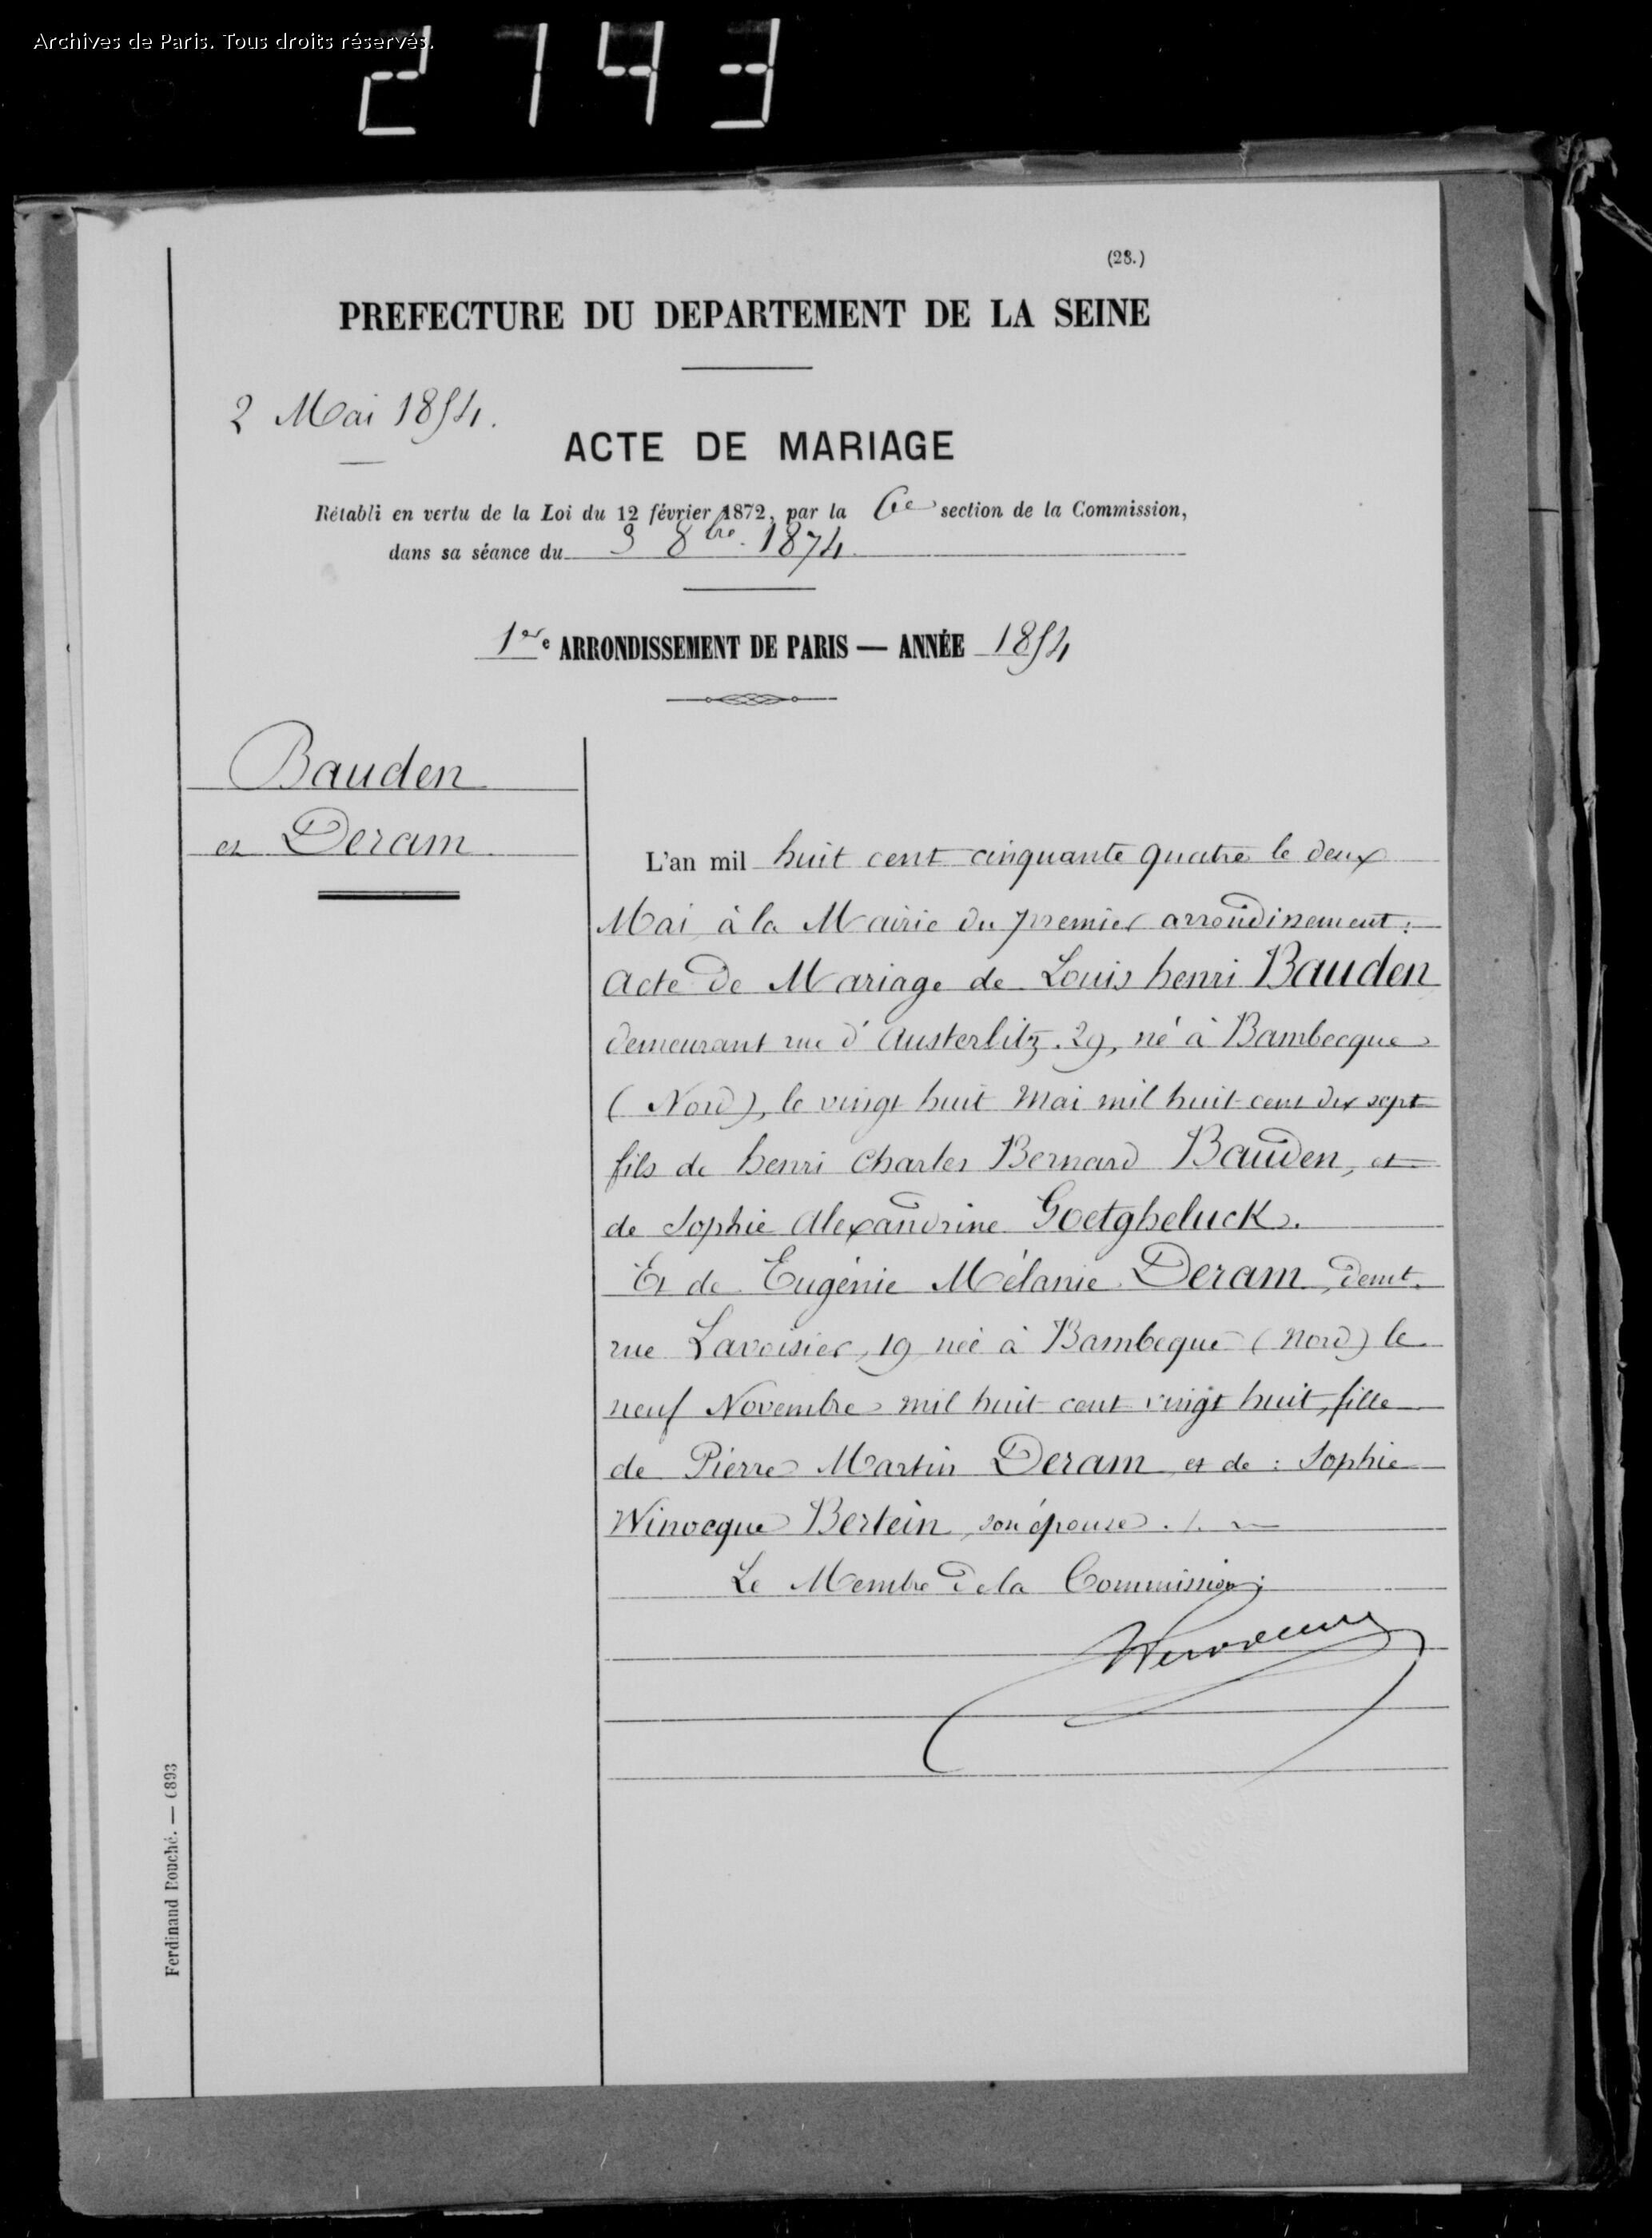 Archives de Paris. Tous droits réservés.
2743
(28.)
PREFECTURE DU DEPARTEMENT DE LA SEINE
2 Mai 1854.
ACTE DE MARIAGE
Rétabli en vertu de la Loi du 12 février 1872, par la 6e section de la Commission,
dans sa séance du 3 8bre. 1874
1re e ARRONDISSEMENT DE PARIS — ANNÉE 1854
Bauden
et Deram
L'an mil huit cent cinquante quatre le deux
Mai à la Mairie du premier arrondissement:
acte de Mariage de Louis henri Bauden
demeurant rue d'Austerlitz. 29, né à Bambecque
(Nord), le vingt huit Mai mil huit cent dix sept
fils de henri Charles Bernard Bauden, et
de Sophie Alexandrine Goetgheluck.
Et de Eugénie Mélanie Deram, demt.
rue Lavoisier, 19 née à Bambeque (Nord) le
neuf Novembre mil huit cent vingt huit, fille
de Pierre Martin Deram et de : Sophie
Winocque Bertein, son épouse ./.
Le Membre de la Commission;
Ferdinand Bouché. — 6893